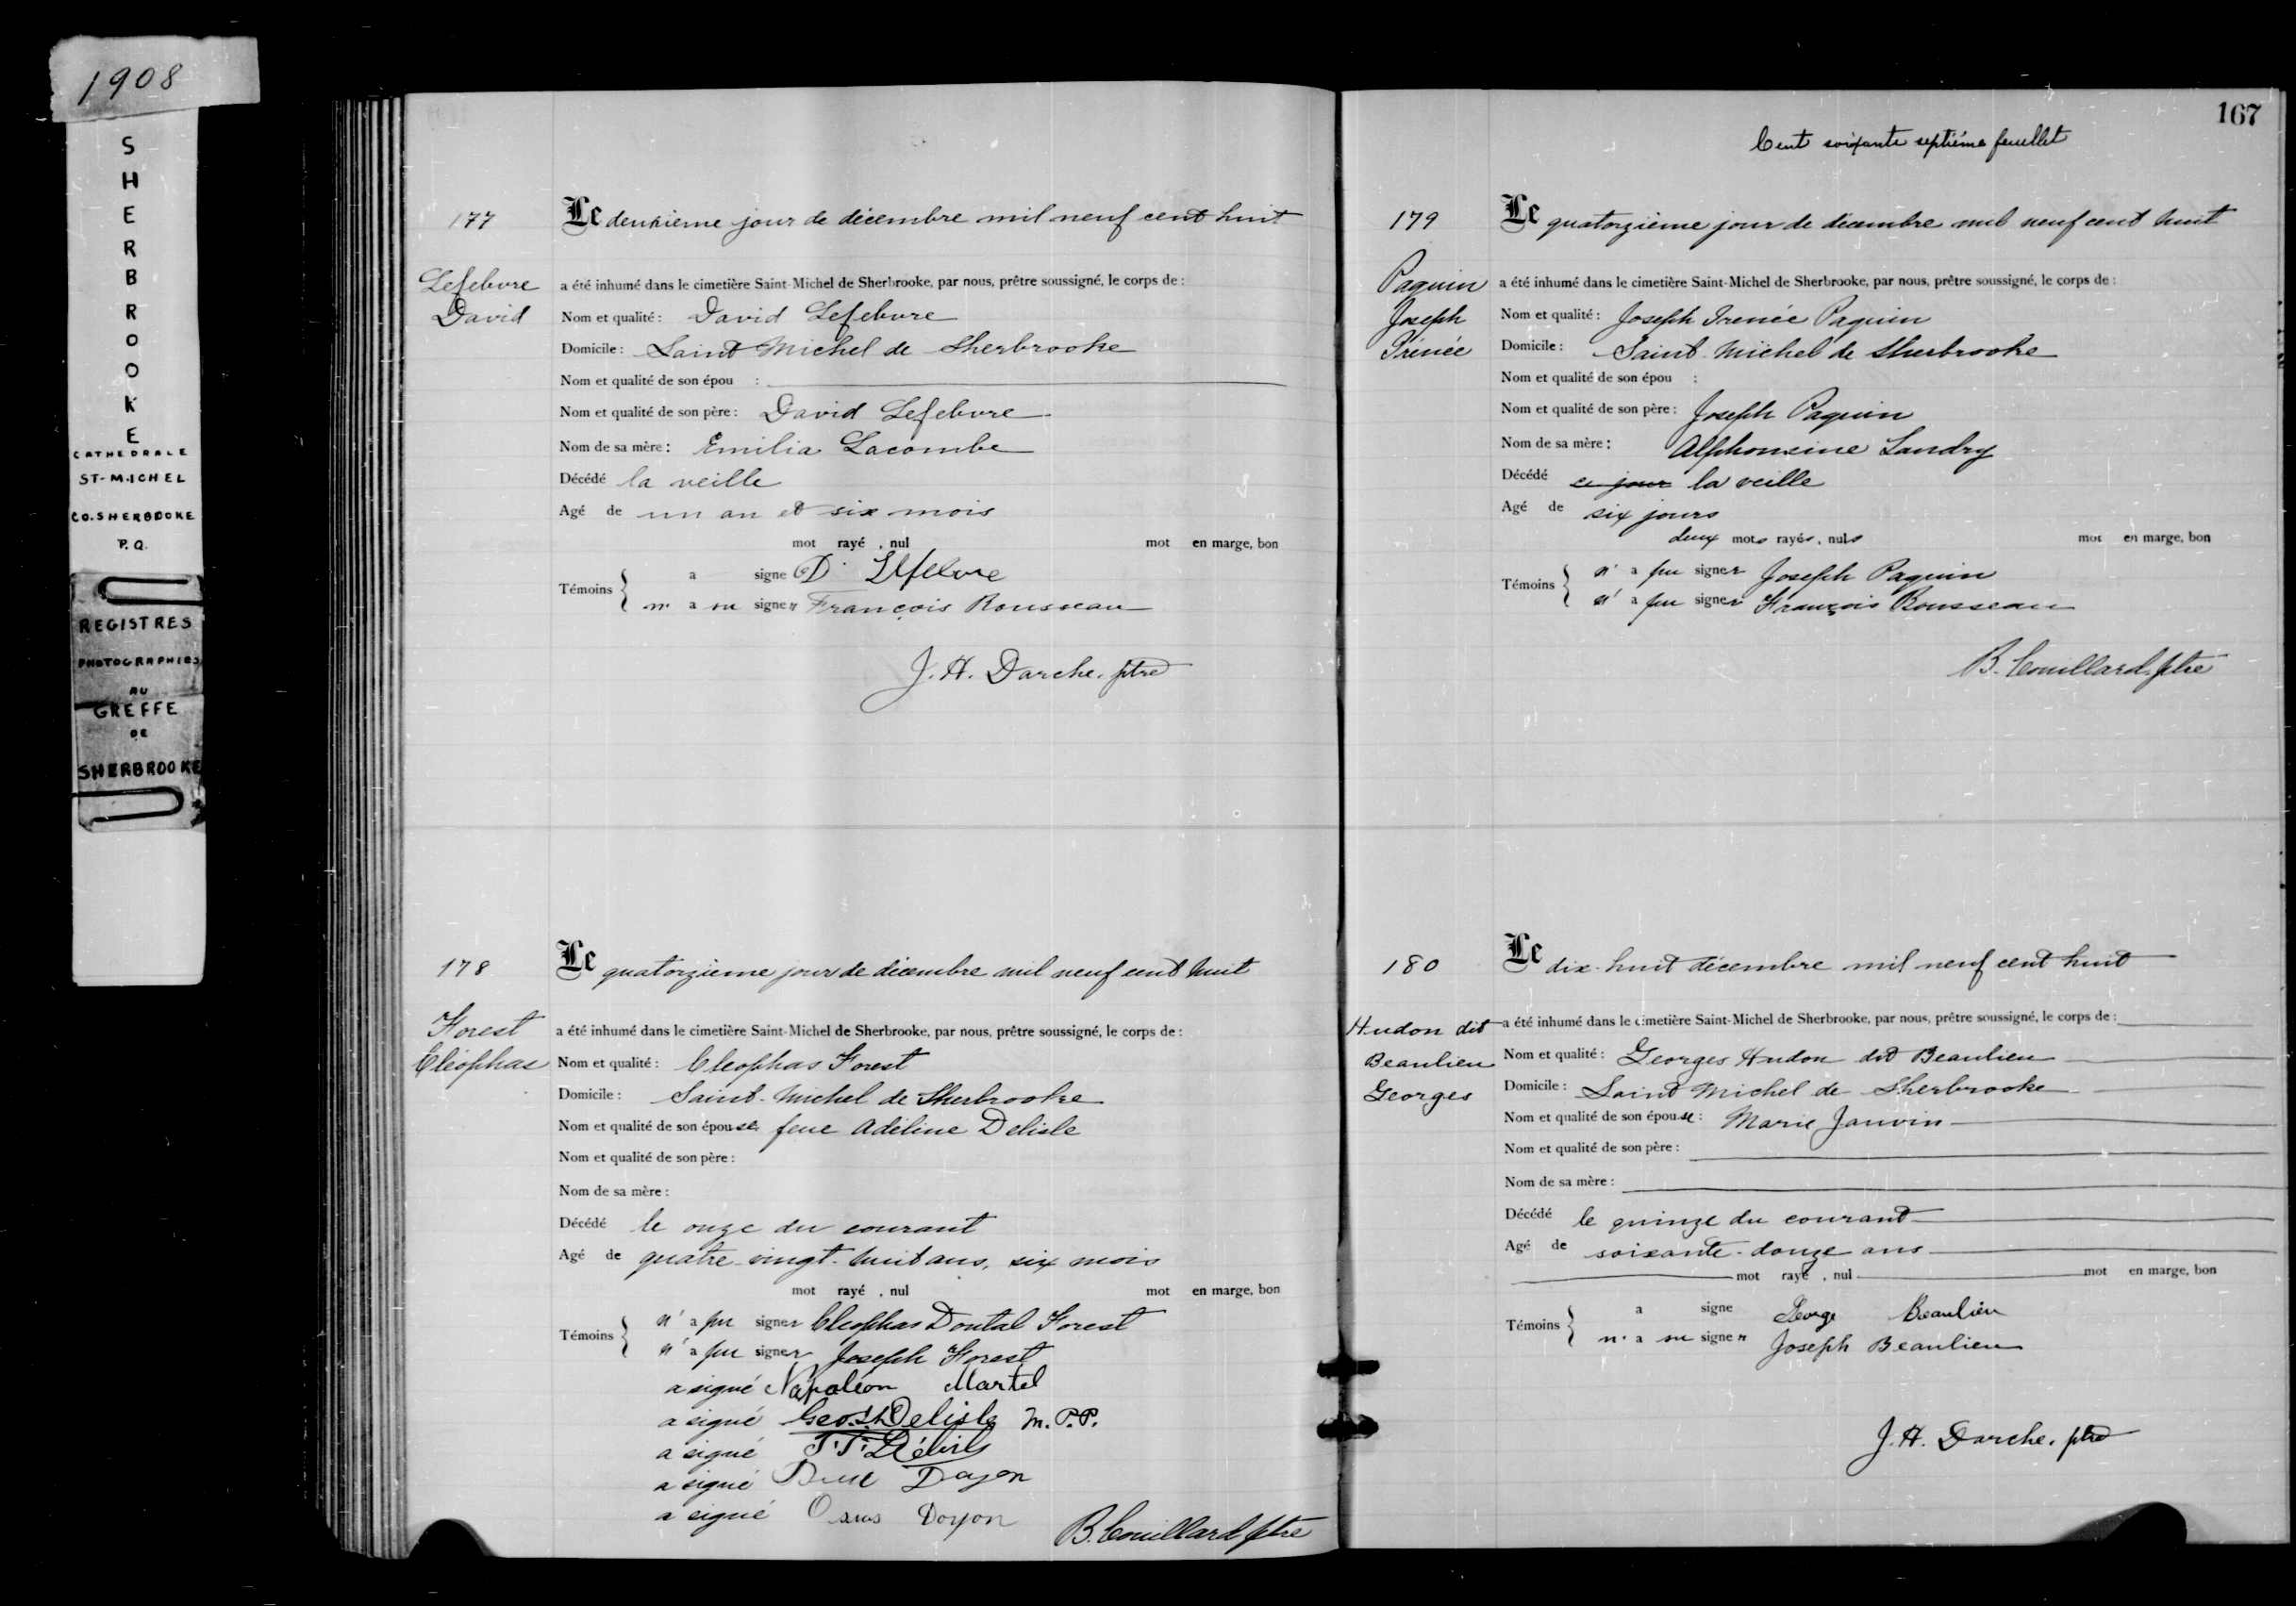 1908
SHERBROOKE
CATHEDRALE
ST-MICHEL
CO. SHERBROOKE
P.Q.
REGISTRES
PHOTOGRAPHIES
AU
GREFFE
DE
SHERBROOKE
177
Le deuxième jour de décembre mil neuf cent huit
Lefebvre
David
a été inhumé dans le cimetière Saint-Michel de Sherbrooke, par nous, prêtre soussigné, le corps de :
Nom et qualité : David Lefebvre
Domicile : Saint Michel de Sherbrooke
Nom et qualité de son épou :
Nom et qualité de son père : David Lefebvre
Nom de sa mère : Emilia Lacombe
Décédé la veille
Agé de un an et six mois
mot rayé , nul mot en marge, bon
Témoins a signe D. Lefebvre
n' a su signer François Rousseau
J. H. Darche. ptre
178
Le quatorzième jour de décembre mil neuf cent huit
Forest
Cléophas
a été inhumé dans le cimetière Saint-Michel de Sherbrooke, par nous, prêtre soussigné, le corps de :
Nom et qualité : Cléophas Forest
Domicile : Saint-Michel de Sherbrooke
Nom et qualité de son épouse feue Adéline Delisle
Nom et qualité de son père :
Nom de sa mère :
Décédé le onze du courant
Agé de quatre-vingt-huit ans, six mois
mot rayé , nul mot en marge, bon
Témoins n' a pu signer Cléophas Dontal Forest
n' a pu signer Joseph Forest
a signé Napoléon Martel
a signé Geo. Delisle M.P.P.
a signé
a signé Doyon
a signé Doyon
B. Couillard ptre
167
Cent soixante septième feuillet
179
Le quatorzième jour de décembre mil neuf cent huit
Paquin
Joseph
Irénée
a été inhumé dans le cimetière Saint-Michel de Sherbrooke, par nous, prêtre soussigné, le corps de :
Nom et qualité : Joseph Irenée Paquin
Domicile : Saint-Michel de Sherbrooke
Nom et qualité de son épou :
Nom et qualité de son père : Joseph Paquin
Nom de sa mère : Alphonsine Landry
Décédé ce jour la veille
Agé de six jours
deux mots rayés, nuls mot en marge, bon
Témoins n' a pu signer Joseph Paquin
n' a pu signer François Rousseau
B. Couillard, ptre
180
Le dix-huit décembre mil neuf cent huit
Hudon dit
Beaulieu
Georges
a été inhumé dans le cimetière Saint-Michel de Sherbrooke, par nous, prêtre soussigné, le corps de :
Nom et qualité : Georges Hudon dit Beaulieu
Domicile : Saint Michel de Sherbrooke
Nom et qualité de son épouse : Marie Janvin
Nom et qualité de son père :
Nom de sa mère :
Décédé le quinze du courant
Agé de soixante-douze ans
mot rayé , nul mot en marge, bon
Témoins a signe George Beaulieu
n' a su signer Joseph Beaulieu
J. H. Darche. ptre